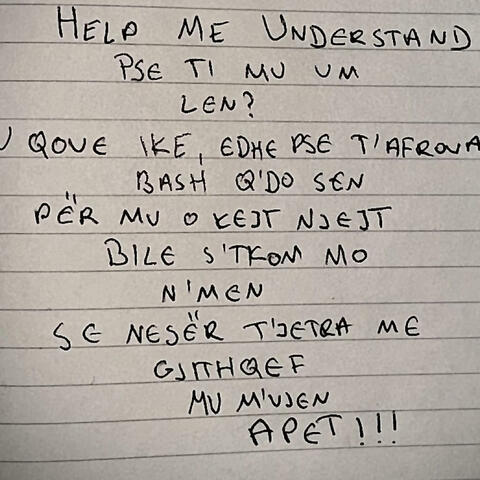 HELP ME UNDERSTAND
PSE TI MU UM
LEN?
U QOVE IKE, EDHE PSE T'AFROVA
BASH Q'DO SEN
PËR MU O KEJT NJEJT
BILE S'TKOM MO
N'MEN
SE NESËR T'JETRA ME
GJITHQEF
MU M'VJEN
APET!!!